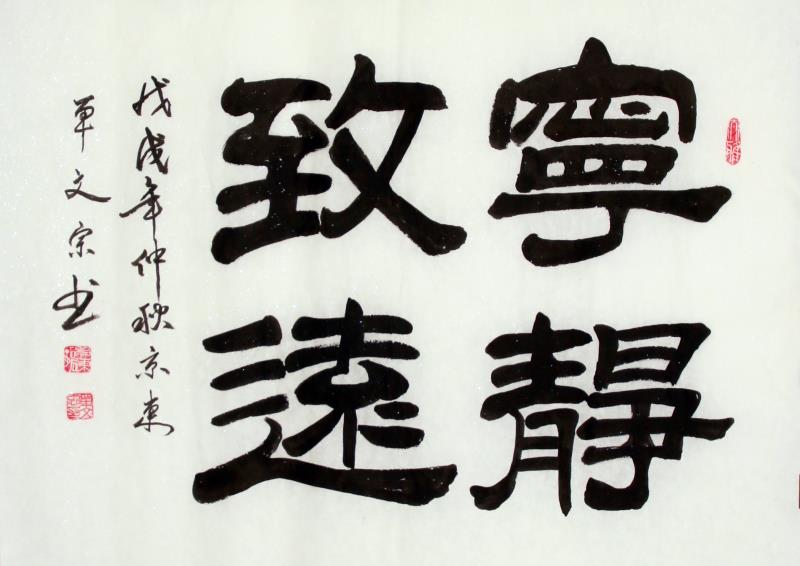 寧靜
致遠
戊戌年仲秋京東
單文宗书